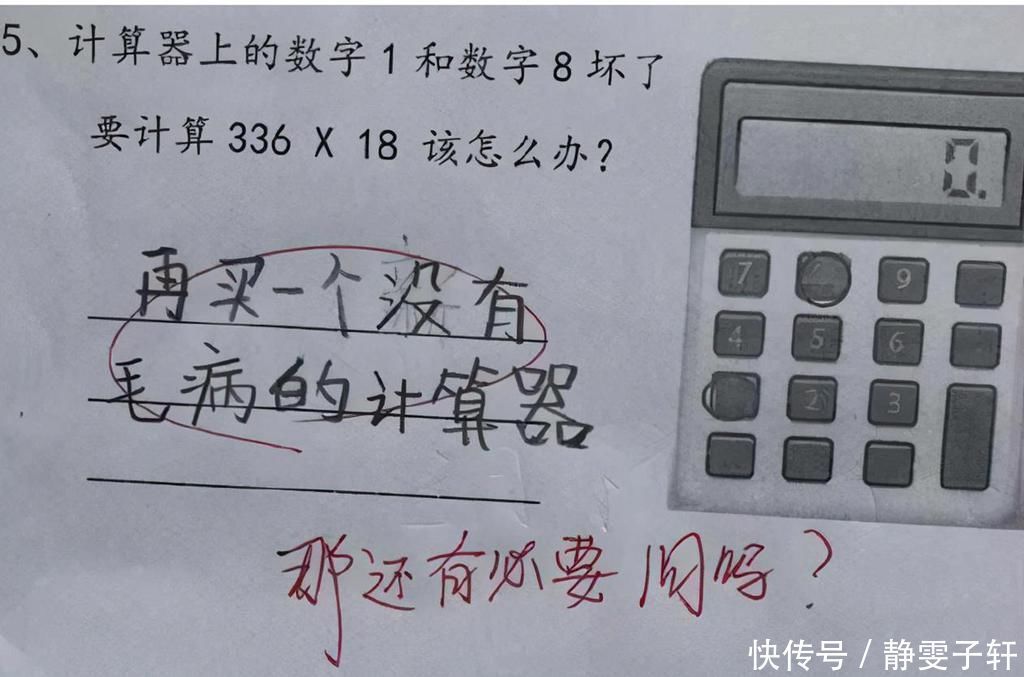 5、计算器上的数字1和数字8坏了
要计算336 X 18 该怎么办?
再买一个没有
毛病的计算器
那还有必要问吗?
0.
7
9
4
5
6
2
3
快传号/静雯子轩